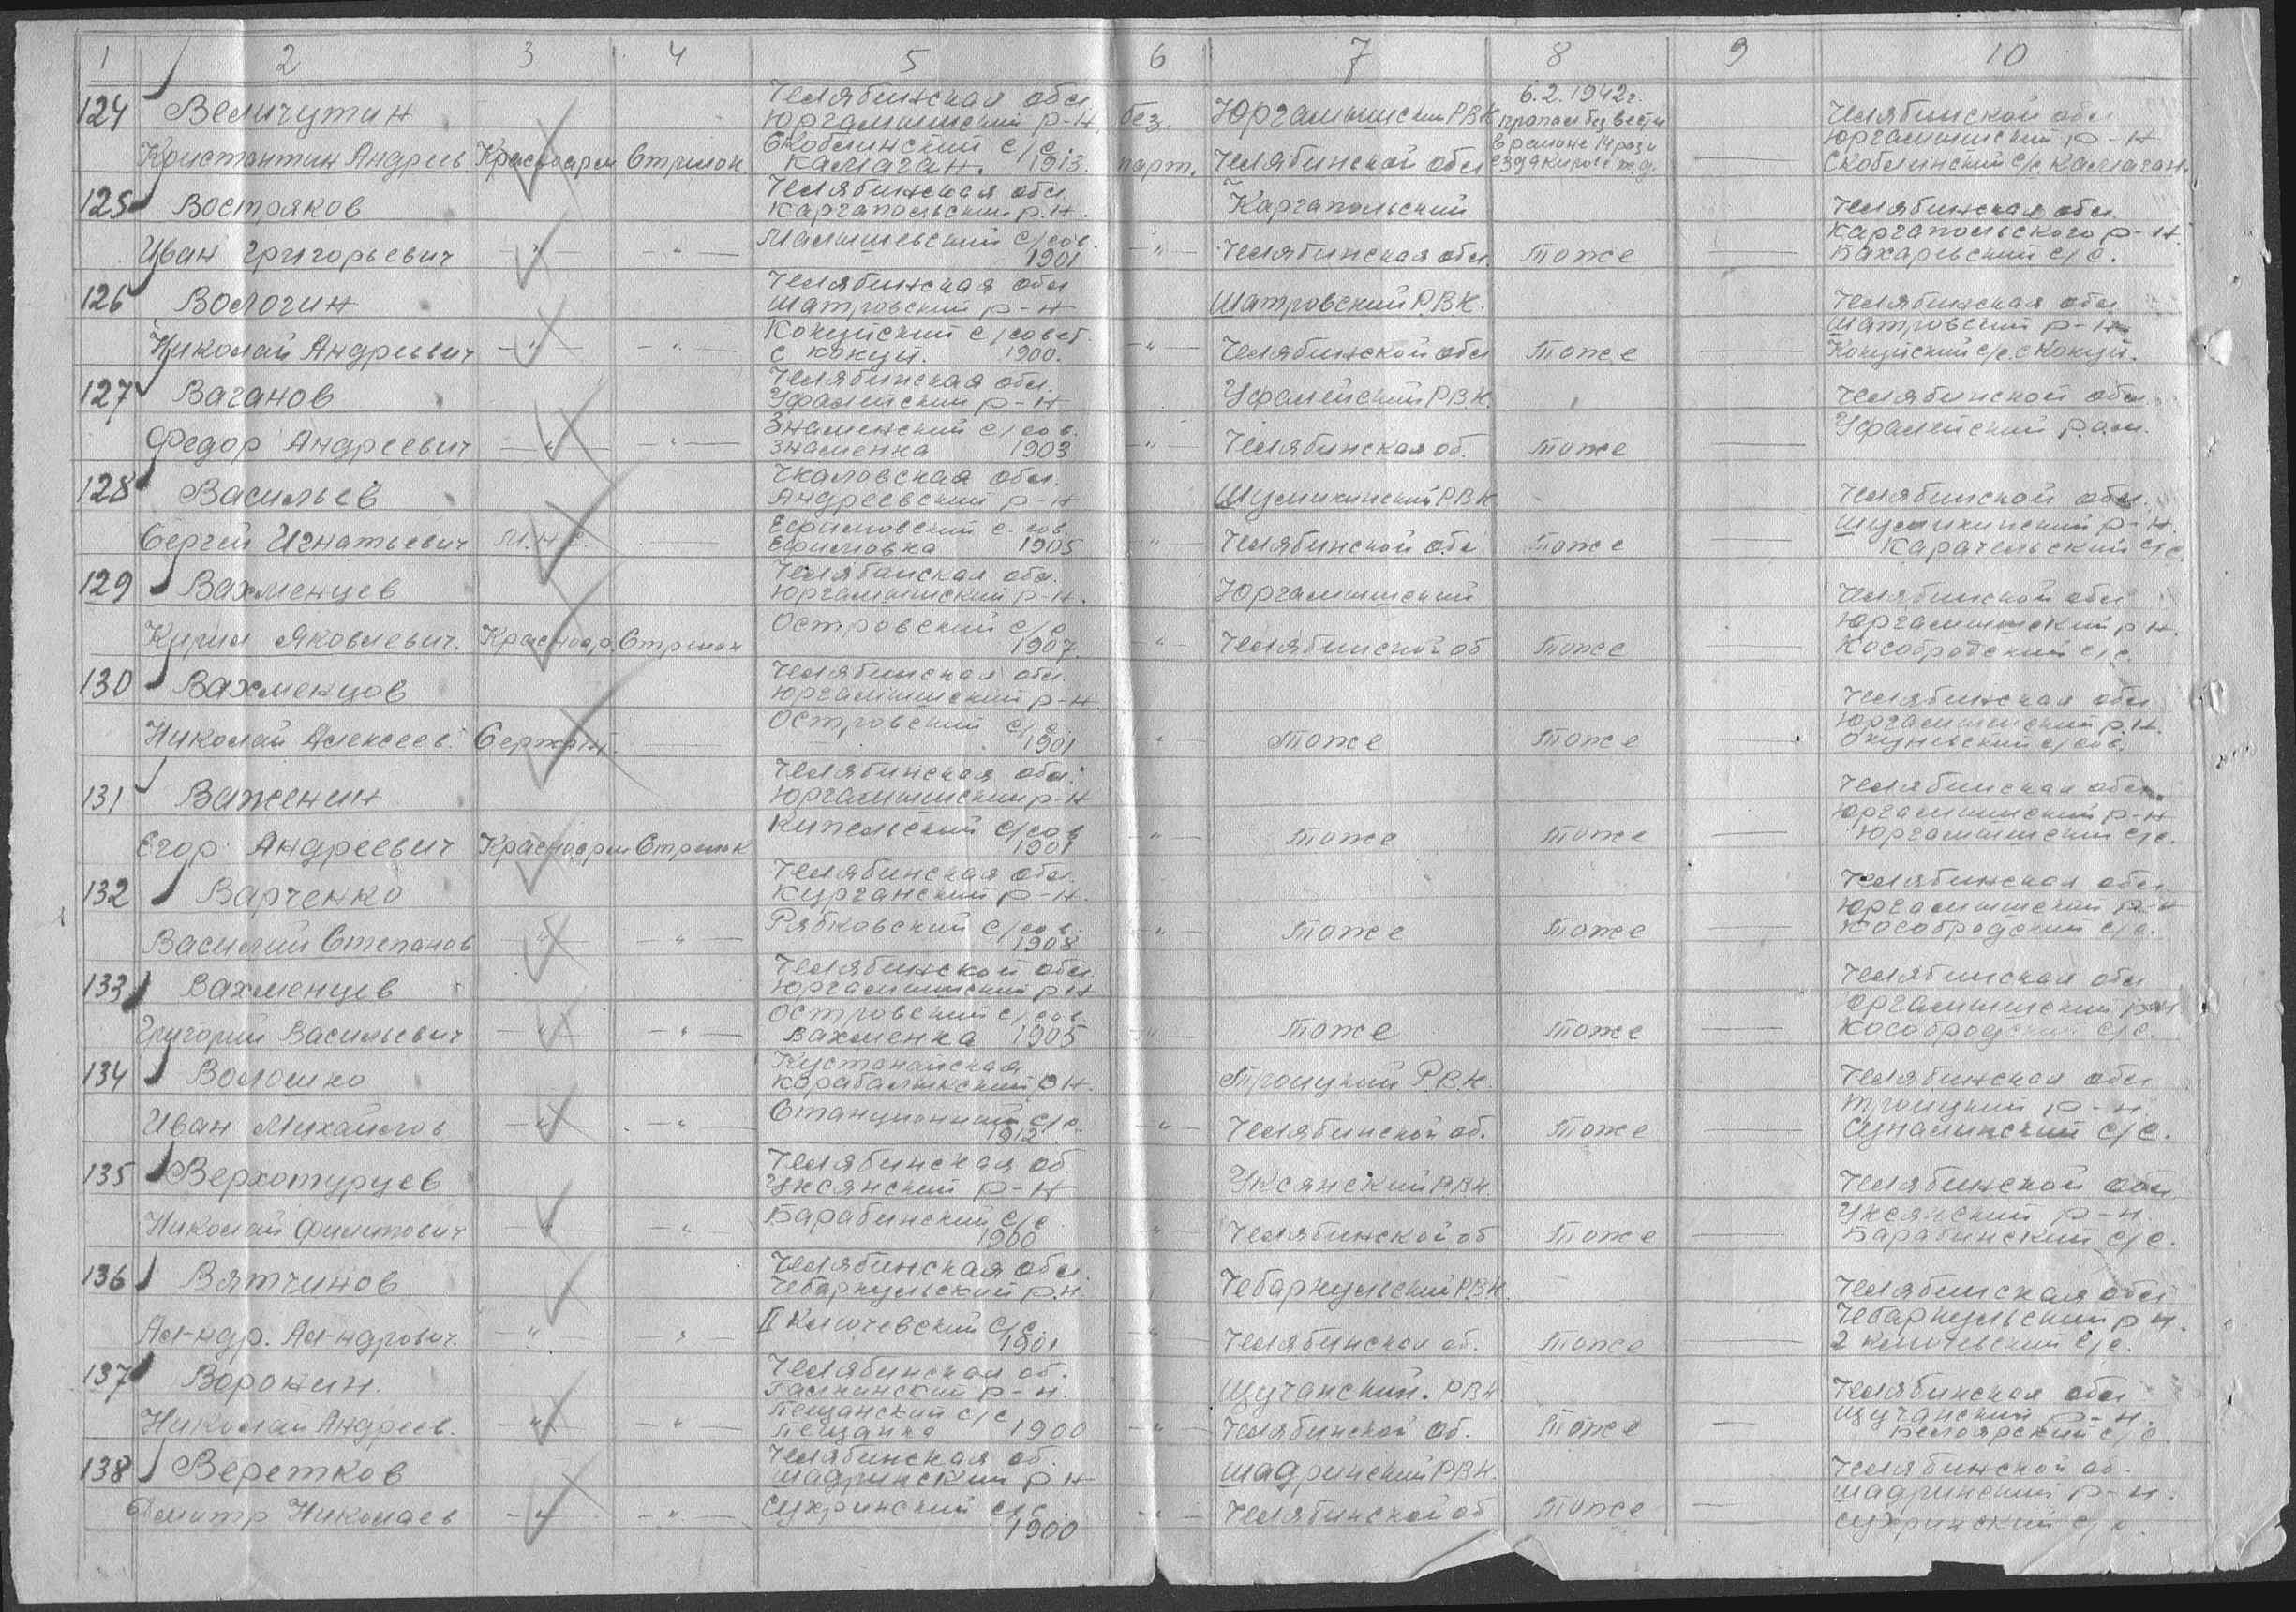 1 2 3 4 5 6 7 8 9 10
124 Величутин
Константин Андреев. Красноарм Стрелок
Челябинская обл.
Юргамышский р-н,
Скоблинский с/с.
Камаган. 1913.
без.
парт.
Юргамышский РВК
Челябинской обл
6.2.1942г.
пропал без вести
в районе
Челябинской обл
Юргамышский р-н
Скоблинский с/с. Камаган.
125 Востряков
Иван Григорьевич - " - - " -
Челябинская обл
Каргапольский р.н.
Малышевский с/сов.
1901
- " -
Каргапольский
Челябинская обл. Тоже
Челябинская обл
Каргапольского р-н.
Бахаревский с/с.
126 Вологин
Николай Андреевич - " - - " -
Челябинская обл
Шатровский р-н
Кокуйский с/совет.
с Кокуй. 1900.
- " -
Шатровский Р.В.К.
Челябинской обл Тоже
Челябинская обл
Шатровский р-н
Кокуйский с/с. с Кокуй.
127 Ваганов
Федор Андреевич - " - - " -
Челябинская обл.
Уфалейский р-н
Знаменский с/сов.
Знаменка 1903
- " -
Уфалейский РВК.
Челябинская об. Тоже
Челябинской обл.
Уфалейский
128 Васильев
Сергей Игнатьевич
Чкаловская обл.
Андреевский р-н
Ефимовский с. сов.
Ефимовка 1905
- " -
Шумихинский РВК
Челябинской обл Тоже
Челябинской обл.
Шумихинский р-н.
Карачельский с/с.
129 Вахменцев
Кирил Яковлевич. Красноар. Стрелок
Челябинская обл.
Юргамышский р-н.
Островский с/с
1907.
- " -
Юргамышский
Челябинской об Тоже
Челябинской обл
Юргамышский р н.
Кособродский с/с.
130 Вахменцов
Николай Алексеев. Сержант.
Челябинская обл.
Юргамышский р-н.
Островский с/с.
1901
- " -
Тоже Тоже
Челябинская обл
Юргамышский р.н.
Окуневский с/сов.
131 Важенин
Егор Андреевич Красноарм Стрелок
Челябинская обл.
Юргамышский р-н
Кипельский с/сов
1901
- " -
Тоже Тоже
Челябинская обл.
Юргамышский р-н
Юргамышский с/с.
132 Варченко
Василий Степанов - " - - " -
Челябинская обл.
Курганский р-н.
Рябковский с/сов.
1908
- " -
Тоже Тоже
Челябинская обл
Юргамышский р-н
Кособродский с/с.
133 Вахменцев
Григорий Васильевич - " - - " -
Челябинской обл.
Юргамышский р-н
Островский с/сов.
Вахменка 1905
- " -
Тоже Тоже
Челябинская обл
Юргамышский
Кособродский с/с.
134 Волошко
Иван Михайлов - " - - " -
Кустанайская
Карабалыкский р н.
Станционный с/с.
1912
- " -
Троицкий Р.В.К.
Челябинской об. Тоже
Челябинская обл
Троицкий р-н.
с/с.
135 Верхотурцев
Николай Филипович - " - - " -
Челябинская об.
Уксянский р-н
Барабинский с/с
1900
- " -
Уксянский РВК.
Челябинской об Тоже
Челябинской обл
Уксянский р-н.
Барабинский с/с.
136 Вятчинов
Ал-ндр. Ал-ндрович. - " - "
Челябинская обл.
Чебаркульский р.н
II Ключевский с/с.
1901
- " -
Чебаркульский РВК.
Челябинской об. Тоже
Челябинская обл
Чебаркульский р н.
2 Ключевский с/с.
137 Воронин.
Николай Андреев. - " - - " -
Челябинская об.
Галкинский р-н.
Пещанский с/с
Пещанка 1900
- " -
Щучанский. РВК
Челябинской об. Тоже
Челябинская обл
Щучанский р-н.
Белоярский с/с.
138 Веретков
Дмитр Николаев - " - - " -
Челябинская об.
Шадринский р н
Сухринский с/с.
1900
- " -
Шадринский РВК.
Челябинской об Тоже
Челябинской об.
Шадринский р-н.
Сухринский с/с.